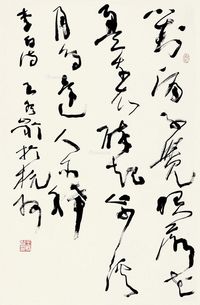 對酒不覺暝落花
盈我衣醉起步溪
月鳥還人亦稀
李白詩 王冬齡於杭州